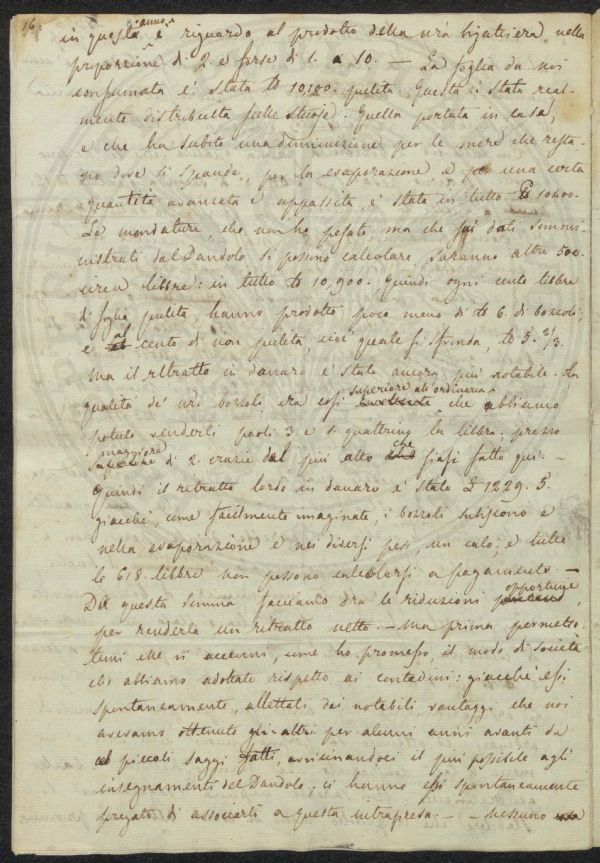 16.
in questa anno è riguardo al prodotto della nra bigattiera, nella
proporzione di 2. e forse di 1. a 10. — La foglia da noi
consumata è stata ℔ 10,100. pulita. Questa è stata real-
mente distribuita sulle stuoje. Quella portata in casa,
e che ha subito una diminuzione per le more che resta-
no dove si spande, per la evaporazione e per una certa
quantità avanzata e appassita, è stata in tutto ℔ 10400.
Le mondature, che non ho pesato, ma che sui dati sommi-
nistrati dal Dandolo si possono calcolare, saranno altre 500.
circa libbre: in tutto ℔ 10,900. Quindi ogni cento libbre
di foglia pulita, hanno prodotto poco meno di ℔ 6. di bozzoli;
e al cento di non pulita, cioè quale si sfronda, ℔ 5. 2/3.
Ma il ritratto in danaro è stato ancora più notabile. La
qualità de' nri bozzoli era così superiore all'ordinaria che abbiamo
potuto venderli paoli 3 e 1. quattrino la libbra; prezzo
maggiore
superiore di 2. crazie dal più alto che siasi fatto qui. —
Quindi il ritratto lordo in danaro è stato £ 1229. 5.
giacchè, come facilmente imaginate, i bozzoli subiscono e
nella evaporazione e nei diversi pesi, un calo; e tutte
le 618. libbre non possono calcolarsi a pagamento. —
Da questa somma facciamo ora le riduzioni opportune,
per renderla un ritratto netto. — Ma prima permette-
temi che vi accenni, come ho promesso, il modo di società
che abbiamo adottato rispetto ai contadini: giacchè essi
spontaneamente, allettati dai notabili vantaggi che noi
avevamo ottenuto gli altri per alcuni anni avanti da
piccoli saggi fatti, avvicinandoci il più possibile agli
insegnamenti del Dandolo; ci hanno essi spontaneamente
pregato di associarli a questa intrapresa. — Nessuno